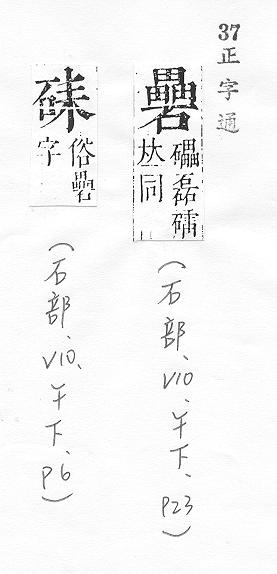 37正字通
礨
礧磊礌
𠀤同
(石部、V10、午下、P23)
俗礨
字
(石部、V10、午下、P6)